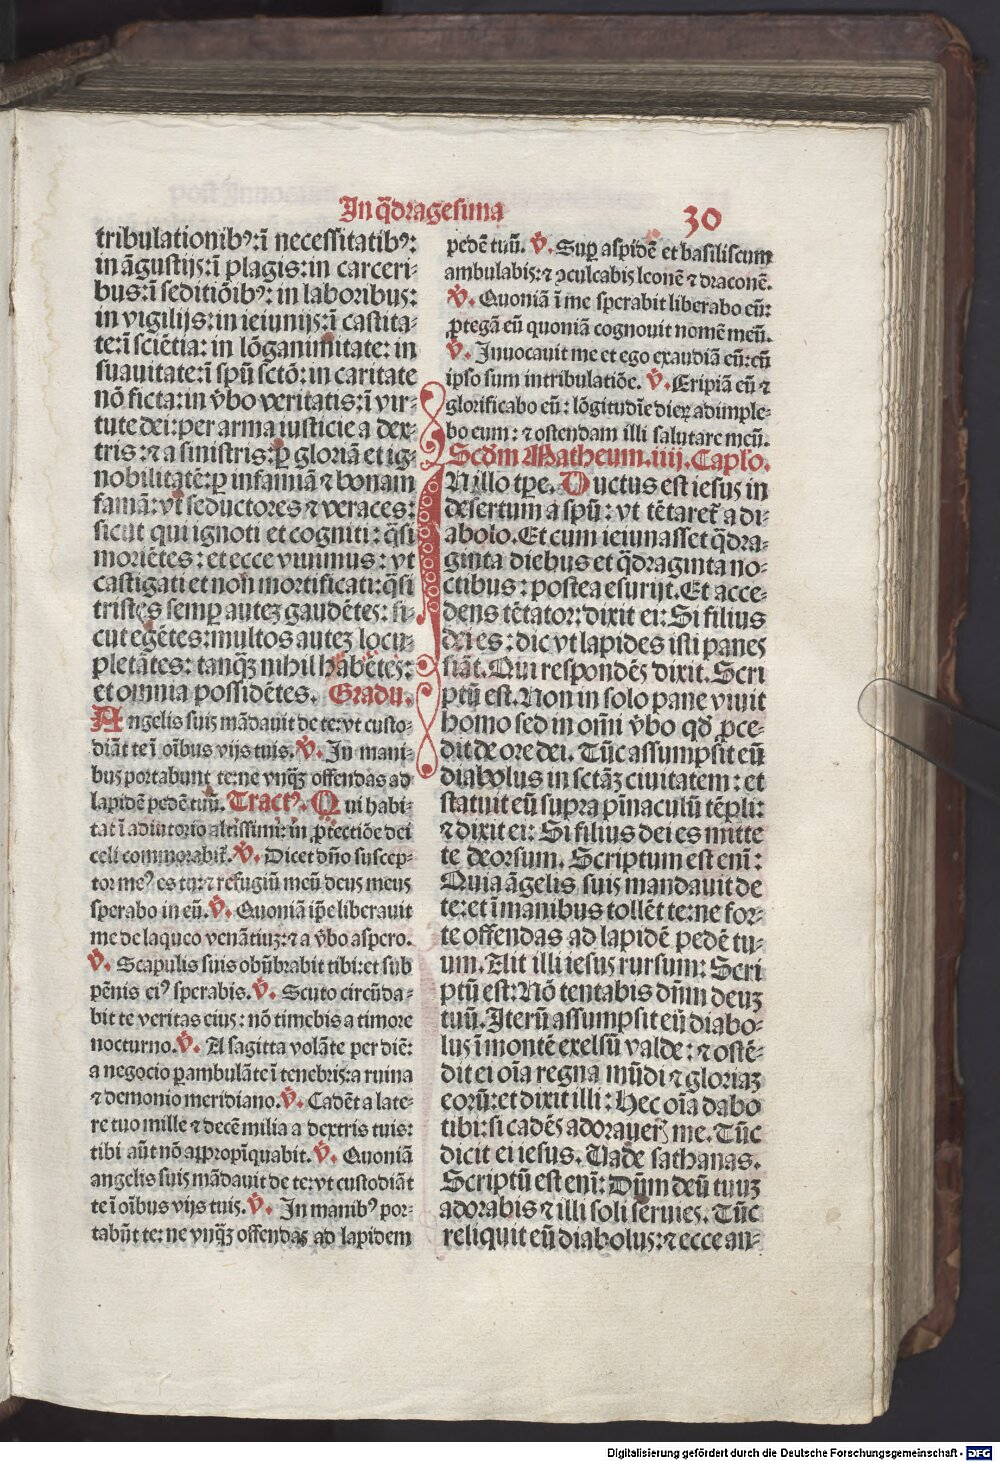 In q̄dragesima
30
tribulationibꝰ: ī necessitatibꝰ:
in āgustijs: ī plagis: in carceri-
bus: ī seditiōibꝰ: in laboribus:
in vigilijs: in ieiunijs: ī castita-
te: ī sciētia: in lōganimitate: in
suauitate: ī spū sctō: in caritate
nō ficta: in v̄bo veritatis: ī vir-
tute dei: per arma iusticie a dex-
tris: ⁊ a sinistris: ꝑ gloriā et ig-
nobilitatē: ꝑ infamiā ⁊ bonam
famā: vt seductores ⁊ veraces:
sicut qui ignoti et cogniti: q̄si
moriētes: et ecce viuimus: vt
castigati et non mortificati: q̄si
tristes semꝑ autez gaudētes: si-
cut egētes: multos autez locu-
pletātes: tanq̄ȝ nihil habētes:
et omnia possidētes. Gradu.
Angelis suis mādauit de te: vt custo-
diāt te ī oībus vijs tuis. v̄. In mani-
bus portabunt te: ne vnq̄ȝ offendas ad
lapidē pedē tuū. Tractꝰ. Qui habi-
tat ī adiutorio altissimi: in ꝓtectiōe dei
celi commorabit̄. v̄. Dicet dn̄o suscep-
tor meꝰ es tu: ⁊ refugiū meū deus meus
sperabo in eū. v̄. Quoniā ip̄e liberauit
me de laqueo venātiuȝ: ⁊ a v̄bo aspero.
v̄. Scapulis suis obūbrabit tibi: et sub
pēnis eiꝰ sperabis. v̄. Scuto circūda-
bit te veritas eius: nō timebis a timore
nocturno. v̄. A sagitta volāte per diē:
a negocio ꝑambulāte ī tenebris: a ruina
⁊ demonio meridiano. v̄. Cadēt a late-
re tuo mille ⁊ decē milia a dextris tuis:
tibi aūt nō appropīquabit. v̄. Quoniā
angelis suis mādauit de te: vt custodiāt
te ī oībus vijs tuis. v̄. In manibꝰ por-
tabūt te: ne vnq̄ȝ offendas ad lapidem
pedē tuū. v̄. Suꝑ aspidē et basiliscum
ambulabis: ⁊ ꝯculcabis leonē ⁊ draconē.
v̄. Quoniā ī me sperabit liberabo eū:
ꝓtegā eū quoniā cognouit nomē meū.
v̄. Inuocauit me et ego exaudiā eū: cū
ipso sum in tribulatiōe. v̄. Eripiā eū ⁊
glorificabo eū: lōgitudīe dieꝝ adimple-
bo eum: ⁊ ostendam illi salutare meū.
Scd̄m Matheum. iiij. Caplo.
In illo tꝑe. Ductus est iesus in
desertum a spū: vt tētaret̄ a di-
abolo. Et cum ieiunasset q̄dra-
ginta diebus et q̄draginta no-
ctibus: postea esurijt. Et acce-
dens tētator: dixit ei: Si filius
dei es: dic vt lapides isti panes
fiāt. Qui respondēs dixit. Scri
ptū est. Non in solo pane viuit
homo sed in omī v̄bo qd̄ ꝓce-
dit de ore dei. Tūc assumpsit eū
diabolus in sctāȝ ciuitatem: et
statuit eū supra pīnaculū tēpli:
⁊ dixit ei: Si filius dei es mitte
te deorsum. Scriptum est enī:
Quia āgelis suis mandauit de
te: et ī manibus tollēt te: ne for-
te offendas ad lapidē pedē tu-
um. Ait illi iesus rursum: Scri
ptū est: Nō tentabis dn̄m deuȝ
tuū. Iterū assumpsit eū diabo-
lus ī montē exelsū valde: ⁊ ostē-
dit ei oīa regna mūdi ⁊ gloriaȝ
eorū: et dixit illi: Hec oīa dabo
tibi: si cadēs adorauer̄ me. Tūc
dicit ei iesus. Vade sathanas.
Scriptū est enī: Dn̄m deū tuuȝ
adorabis ⁊ illi soli seruies. Tūc
reliquit eū diabolus: ⁊ ecce an-
Digitalisierung gefördert durch die Deutsche Forschungsgemeinschaft - DFG